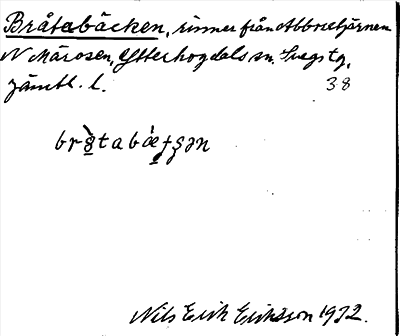 Bråtabäcken, rinner från Abborrtjärnen
N Mårosen, Ytterhogdals sn. Svegs tg,
Jämtl. l. 38
Nils Erik Eriksson 1972.